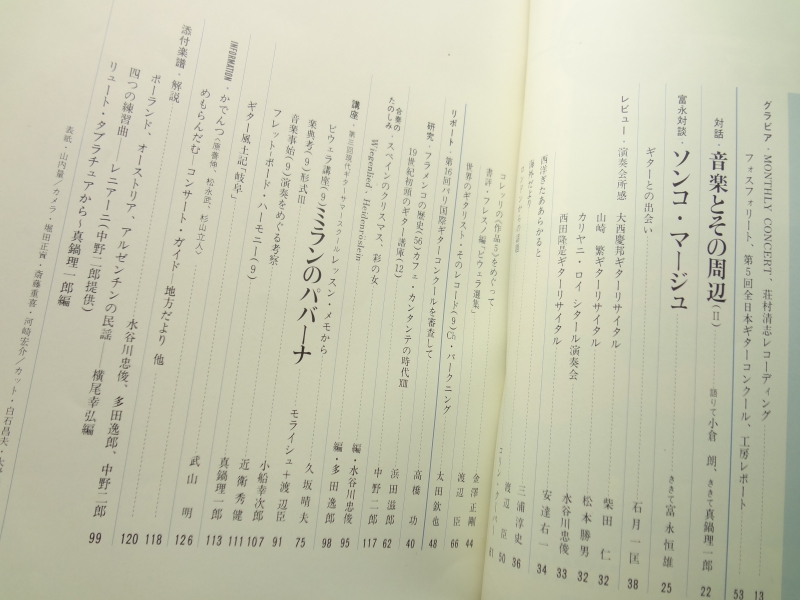 グラビア・MONTHLY CONCERT、荘村清志レコーディング 13
フォスフォリート、第5回全日本ギターコンクール、工房レポート 53
対話・音楽とその周辺（II） 語りて小倉 朗、ききて真鍋理一郎 22
富永対談・ソンコ・マージュ ききて富永恒雄 25
ギターとの出会い 石月一匡 38
レビュー・演奏会所感 大西慶邦ギターリサイタル 柴田 仁 32
山崎 繁ギターリサイタル 松本勝男 32
カリヤニ・ロイ シタール演奏会 水谷川忠俊 33
西田隆是ギターリサイタル 安達右一 34
三浦淳史 36
渡辺 臣 50
コレッリの《作品5》をめぐって
書評・フレスノ編「ビウェラ選集」 金澤正剛 44
世界のギタリスト・そのレコード（9）Ch・パークニング 渡辺 臣 66
リポート・第16回パリ国際ギターコンクールを審査して 太田欽也 48
研究・フラメンコの歴史（56）カフェ・カンタンテの時代XIII 高橋 功 40
19世紀初頭のギター譜庫（12） 浜田滋郎 62
合奏のたのしみ・スペインのクリスマス、彩の女 中野二郎 117
Wiegenlied・Heidenröslein 編・水谷川忠俊 95
講座・第三回現代ギターサマースクール レッスン・メモから 編・多田逸郎 98
ビウェラ講座（9）ミランのパバーナ
楽典考（9）形式III 久坂晴夫 75
音楽事始（9）演奏をめぐる考察 モライシュ＋渡辺臣 91
フレット・ボード・ハーモニー（9） 小船幸次郎 107
ギター風土記「岐阜」 近衛秀健 111
真鍋理一郎 113
INFORMATION・かでんつ（原善伸、松永武、杉山立人）
めもらんだむ コンサート・ガイド 地方だより 他 武山 明 126
添付楽譜・解説 118
ポーランド、オーストリア、アルゼンチンの民謡 水谷川忠俊、多田逸郎、中野二郎 120
四つの練習曲 レニアーニ（中野二郎提供） 横尾幸弘編 99
リュート・タブラチュアから～真鍋理一郎編
表紙・山内量／カメラ・堀田正實・斎藤重喜・河崎宏介／カット・白石昌夫・大